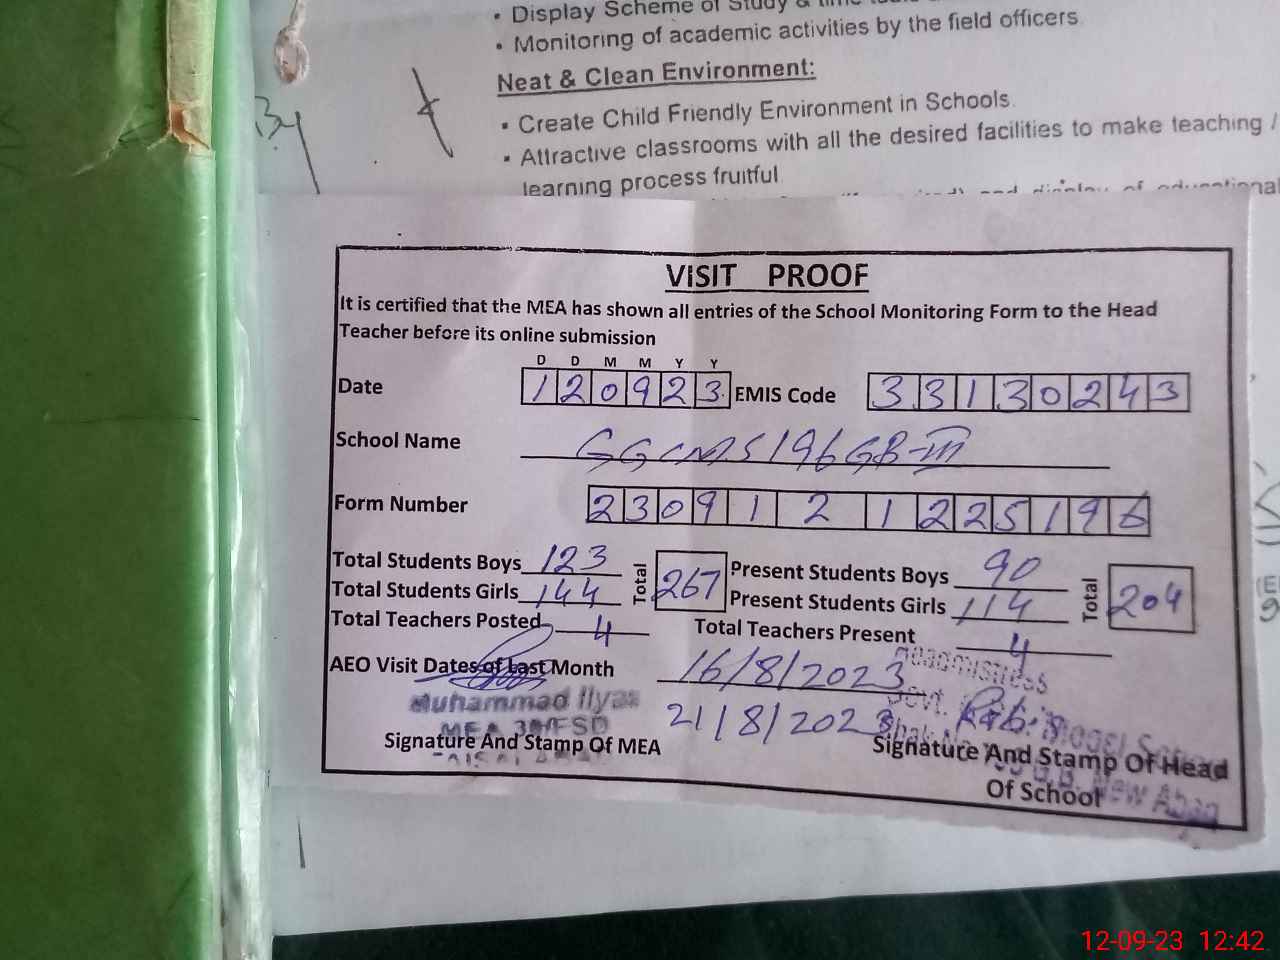 • Display Scheme of Study & time
• Monitoring of academic activities by the field officers
Neat & Clean Environment:
• Create Child Friendly Environment in Schools.
• Attractive classrooms with all the desired facilities to make teaching /
learning process fruitful
and display of educational
VISIT PROOF
It is certified that the MEA has shown all entries of the School Monitoring Form to the Head
Teacher before its online submission
D D M M Y Y
Date 1 2 0 9 2 3 EMIS Code 3 3 1 3 0 2 4 3
School Name GGCMS 196 GB-III
Form Number 2 3 0 9 1 2 1 2 2 5 1 9 6
Total Students Boys 123 Total 267 Present Students Boys 90 Total 204
Total Students Girls 144 Present Students Girls 114
Total Teachers Posted 4 Total Teachers Present 4
AEO Visit Dates of Last Month 16/8/2023
21/8/2023
Headmistress
Govt.
Muhammad Ilyas
MEA 38/FSD
FAISALABAD
Signature And Stamp Of MEA
Signature And Stamp Of Head
Of School
12-09-23 12:42